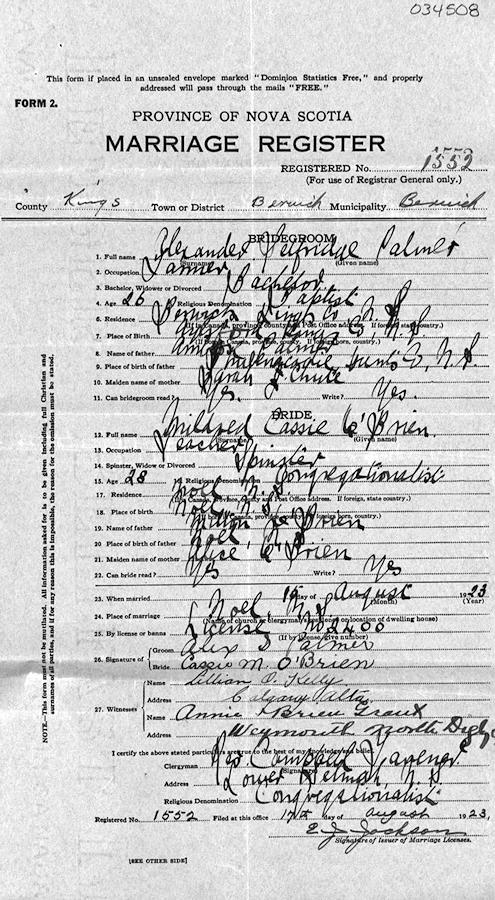 034508
This form if placed in an unsealed envelope marked "Dominion Statistics Free," and properly
addressed will pass through the mails "FREE."
FORM 2.
PROVINCE OF NOVA SCOTIA
MARRIAGE REGISTER
REGISTERED No. 1552
(For use of Registrar General only.)
County Kings Town or District Berwick Municipality Berwick
BRIDEGROOM
1. Full name Alexander Selfridge Palmer
(Surname) (Given name)
2. Occupation Farmer
3. Bachelor, Widower or Divorced Bachelor
4. Age 26 5. Religious Denomination Baptist
6. Residence Berwick Kings Co N.S.
(If in Canada, province, county and Post Office address. If foreign state, country.)
7. Place of Birth Kings Co. N.S.
(If in Canada, province, county. If foreign born, country.)
8. Name of father Palmer
9. Place of birth of father Hants Co, N.S
10. Maiden name of mother Sarah Chute
11. Can bridegroom read? Yes. Write? Yes.
BRIDE
12. Full name Mildred Cassie O'Brien.
(Surname) (Given name)
13. Occupation Teacher
14. Spinster, Widow or Divorced Spinster
15. Age 28 16. Religious Denomination Congregationalist
17. Residence Noel N.S.
(If in Canada, Province, county and Post Office address. If foreign, state, country.)
18. Place of birth Noel N.S.
(If in Canada, province, county. If foreign born, country.)
19. Name of father O'Brien
20. Place of birth of father Noel N.S
21. Maiden name of mother Alice O'Brien
22. Can bride read? Yes Write? Yes
23. When married day of August 1923
(Month) (Year)
24. Place of marriage Noel, N.S
(Name of church or clergyman's residence or location of dwelling house)
25. By license or banns License No 2400
(If by license, give number)
26. Signature of Groom Alex S Palmer
Bride Cassie M. O'Brien
27. Witnesses Name Lillian O. Kelly
Address Calgary Alta
Name Annie O'Brien
Address Weymouth North Digby
I certify the above stated particulars are true to the best of my knowledge and belief.
Clergyman
(Signature)
Address Lower Selmah, N.S
Religious Denomination Congregationalist
Registered No. 1552 Filed at this office 17th day of August 1923,
E J Jackson
Signature of Issuer of Marriage Licenses.
[SEE OTHER SIDE]
NOTE.—This form must not be mutilated. All information asked for is to be given including full Christian and
surnames of all parties, and if for any reason this is impossible, the reason for the omission must be stated.